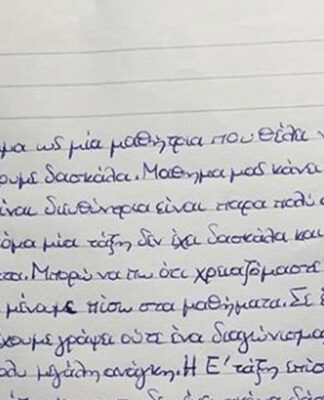 μα ως μία μαθήτρια που θέλα
ουμε δασκάλα. Μαθημα μας κάνε
είναι διευθύντρια είναι παρα πολύ
όμα μία τάξη δέν έχα δασκάλα και
τα. Μπορώ να πω ότι χρειαζόμαστε
μέναμε πίσω στα μαθήματα. Σε
χουμε γράψε ούτε ένα διαγώνισμα
λυ μεγάλη ανάγκη. Η Ε' τάξη επίσ